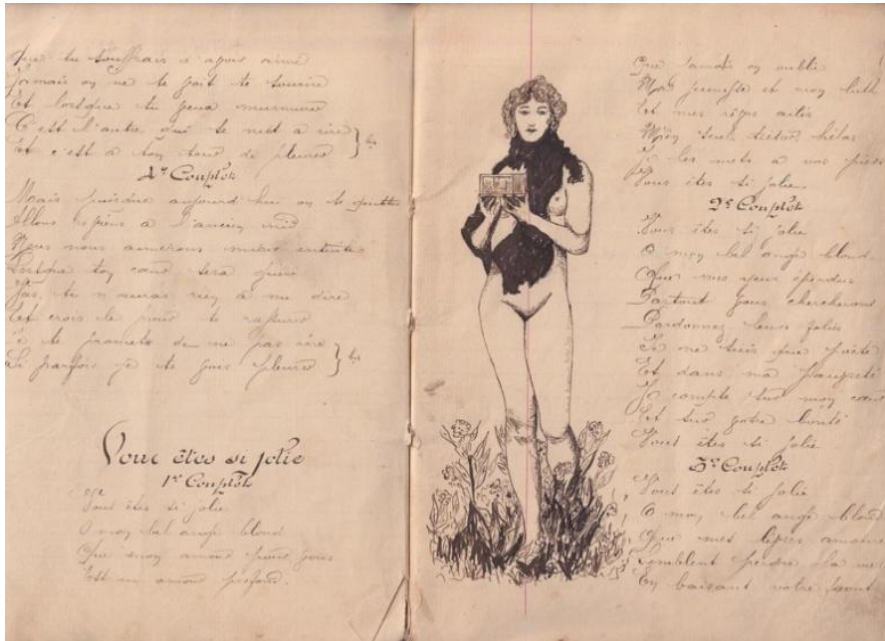 Que tu souffrais d'avoir aimé
Jamais on ne te fait te sourire
Et lorsque tu peux murmurer
C'est l'autre qui se met à rire } bis
Et c'est à ton tour de pleurer
4e Couplet
Mais puisque aujourd'hui on te quitte
Allons reviens à l'ancien nid
Nous nous aimerons mieux ensuite
Lorsque ton cœur sera guéri
Pas, tu n'auras rien à me dire
Et crois le pour te rassurer
Je te promets de ne pas rire } bis
Si parfois je te vois pleurer
Vous êtes si jolie
1er Couplet
Vous êtes si jolie
O mon bel ange blond
Que mon amour pour vous
Est un amour profond.
Que jamais on oublie
Ma jeunesse et mon luth
Et mes rêves
Mon seul trésor hélas
Je les mets à vos pieds
Vous êtes si jolie.
2e Couplet
Vous êtes si jolie
O mon bel ange blond.
Que mes yeux éperdus
Partout vous chercheront
Pardonnez leurs folies
Je ne suis que poète
Et dans ma pauvreté
Je compte sur mon cœur
Et sur votre bonté
Vous êtes si jolie
3e Couplet
Vous êtes si jolie
O mon bel ange blond
Que mes lèvres
Semblent perdre la vie
En baisant votre front